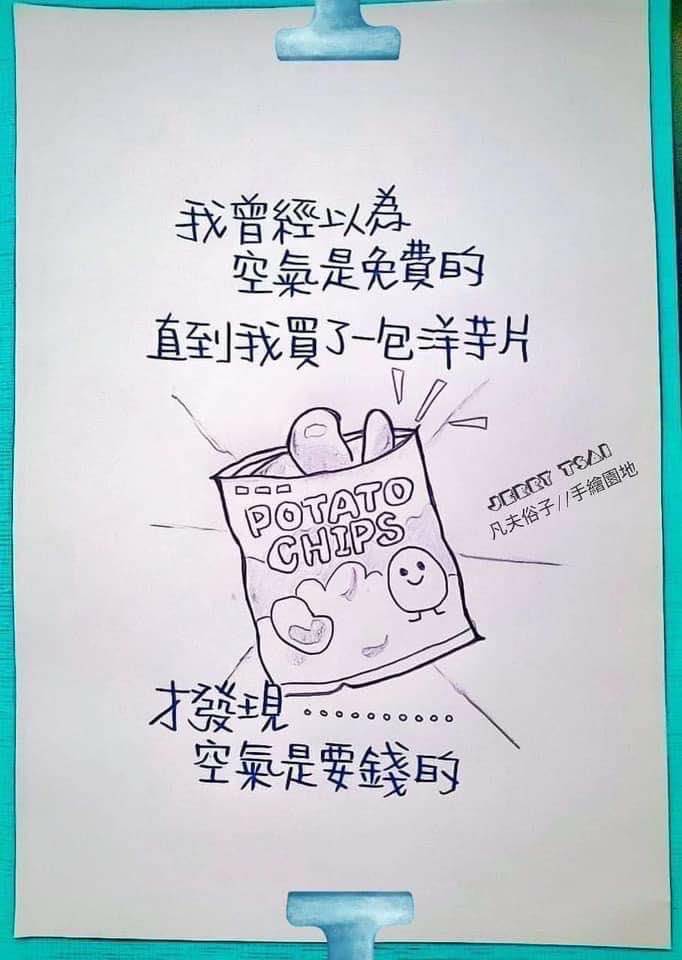 我曾經以為
空氣是免費的
直到我買了一包洋芋片
POTATO
CHIPS
JERRY TSAI
凡夫俗子//手繪園地
才發現..........
空氣是要錢的